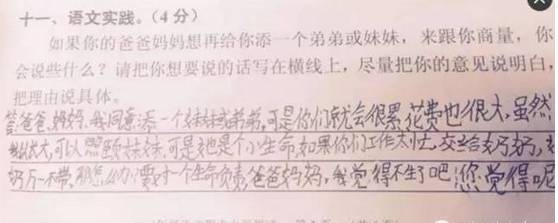 十一、语文实践。(4分)
如果你的爸爸妈妈想再给你添一个弟弟或妹妹，来跟你商量，你
会说些什么？请把你想要说的话写在横线上，尽量把你的意见说明白，
把理由说具体。
答:爸爸,妈妈,我同意添一个妹妹或弟弟,可是你们就会很累,花费也很大,虽然
我长大,可以照顾妹妹.可是她是个小生命,如果你们工作太忙,交给奶奶,
奶万一不带,那怎么办?要对一个生命负责,爸爸妈妈,我觉得不生了吧,您觉得呢